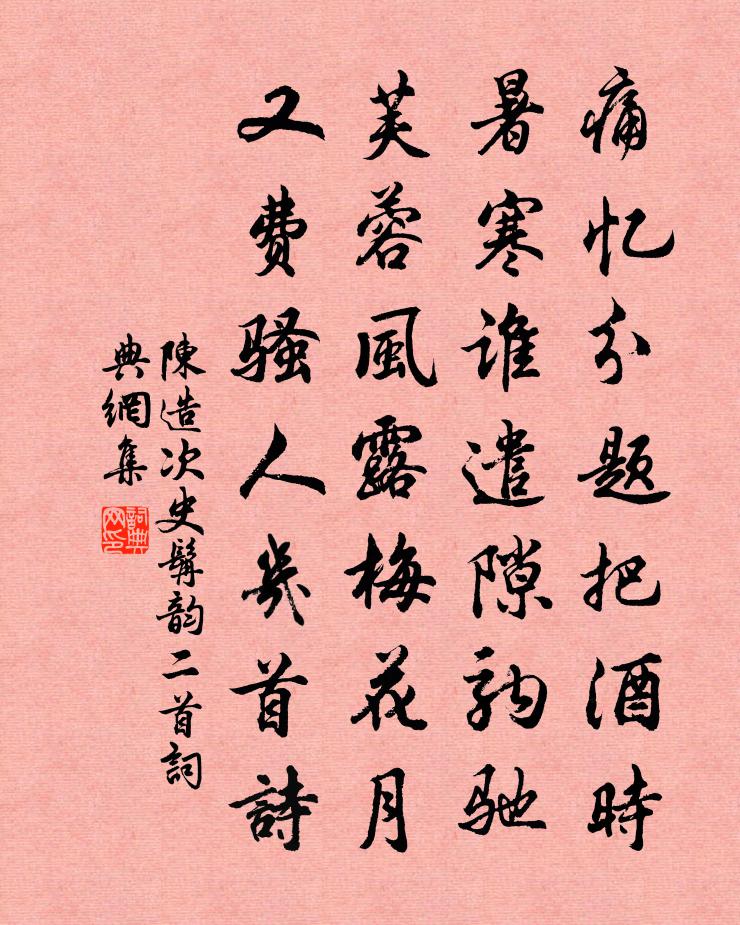 痛忆分题把酒時
暑寒谁遣隙驹驰
芙蓉風露梅花月
又费骚人幾首詩
陳造次史髯韵二首詞
典網集
詞典网印